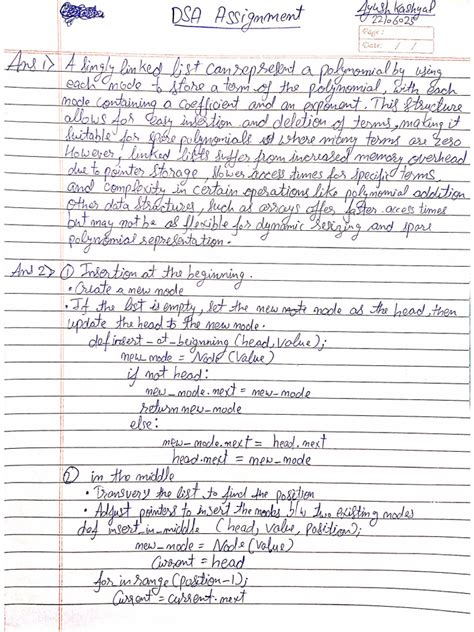 DSA Assignment
Ayush Kashyap
22106025
Page:
Date: / /
Ans 1) A singly linked list can represent a polynomial by using
each node to store a term of the polynomial, with each
node containing a coefficient and an exponent. This structure
allows for easy insertion and deletion of terms, making it
suitable for spare polynomials where many terms are zero
However, linked lists suffer from increased memory overhead
due to pointer storage, slower access times for specific terms,
and complexity in certain operations like polynomial addition
other data structures, such as arrays offer faster access times
but may not be as flexible for dynamic resizing and spare
polynomial representation.
Ans 2) ① Insertion at the beginning.
• Create a new node
• If the list is empty, set the new node as the head, then
update the head to the new node.
def insert-at-beignning (head, value);
new_node = Node (Value)
if not head:
new_node.next = new_node
return new_node
else:
new_node.next = head.next
head.next = new_node
② in the middle
• Transvers the list to find the position
• Adjust pointers to insert the nodes b/w two existing nodes
def insert_in_middle (head, value, position);
new_node = Node (value)
Current = head
for in range (position-1);
Current = current.next